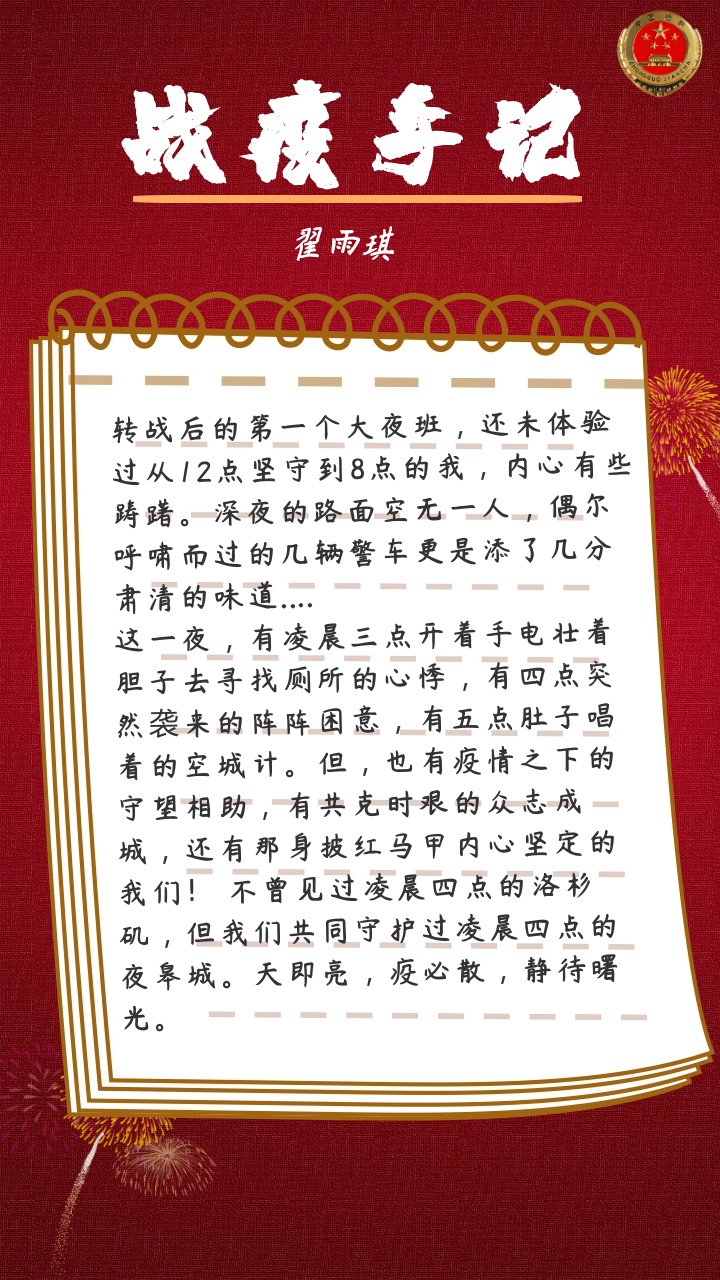 战疫手记
翟雨琪
转战后的第一个大夜班，还未体验
过从12点坚守到8点的我，内心有些
踌躇。深夜的路面空无一人，偶尔
呼啸而过的几辆警车更是添了几分
肃清的味道....
这一夜，有凌晨三点开着手电壮着
胆子去寻找厕所的心悸，有四点突
然袭来的阵阵困意，有五点肚子唱
着的空城计。但，也有疫情之下的
守望相助，有共克时艰的众志成
城，还有那身披红马甲内心坚定的
我们！ 不曾见过凌晨四点的洛杉
矶，但我们共同守护过凌晨四点的
夜皋城。天即亮，疫必散，静待曙
光。